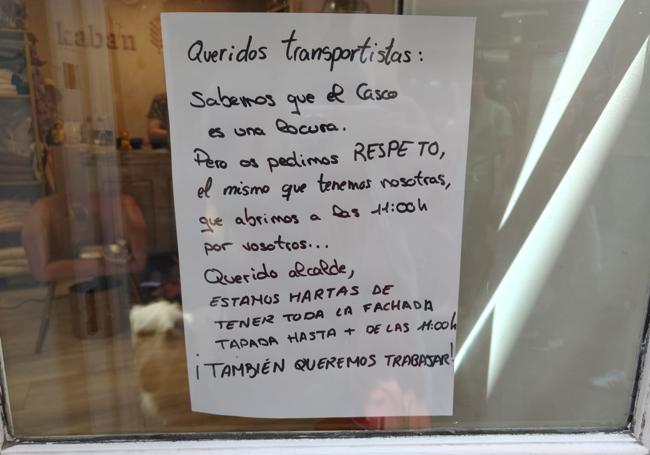 kaban
Queridos transportistas:
Sabemos que el Casco
es una locura.
Pero os pedimos RESPETO,
el mismo que tenemos nosotras,
que abrimos a las 11:00h
por vosotros...
Querido alcalde,
ESTAMOS HARTAS DE
TENER TODA LA FACHADA
TAPADA HASTA + DE LAS 11:00h
¡TAMBIÉN QUEREMOS TRABAJAR!